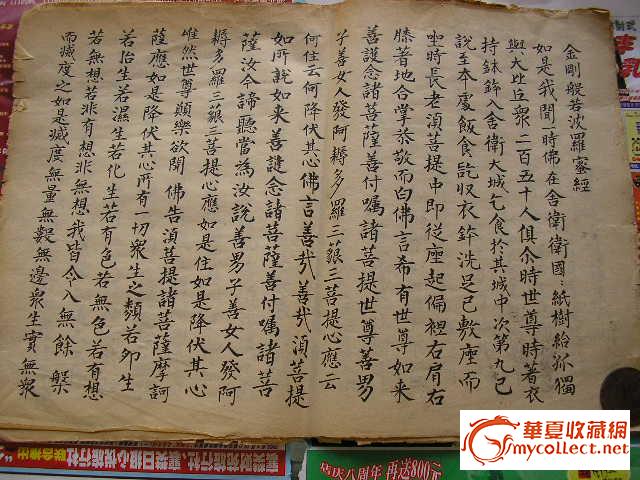 金剛般若波羅蜜經
如是我聞一時佛在舍衛衛國:紙樹給孤獨
與大比丘衆二百五十人俱介時世尊時著衣
持鉢鉢入舍衛大城乞食於其城中次第九已
說至本處飯食訖収衣鉢洗足已敷座而
坐時長老湏菩提中即從座起偏袒右肩右
膝著地合掌恭敬而白佛言希有世尊如来
善護念諸菩薩善付嘱諸菩提世尊善男
子善女人發阿耨多羅三藐三菩提心應云
何住云何降伏其心佛言善哉善哉湏菩提
如所說如来善護念諸菩薩善付嘱諸菩
薩汝今諦聽當為汝說善男子善女人發阿
耨多羅三藐三菩提心應如是住如是降伏其心
唯然世尊願樂欲聞 佛告湏菩提諸菩薩摩訶
薩應如是降伏其心所有一切衆生之類若夘生
若胎生若濕生若化生若有色若無色若有想
若無想若非有想非無想我皆令入無餘 槃
而滅度之如是滅度無量無數無邊衆生實無衆
店庆八周年 再送800元
華夏收藏網
mycollect.net